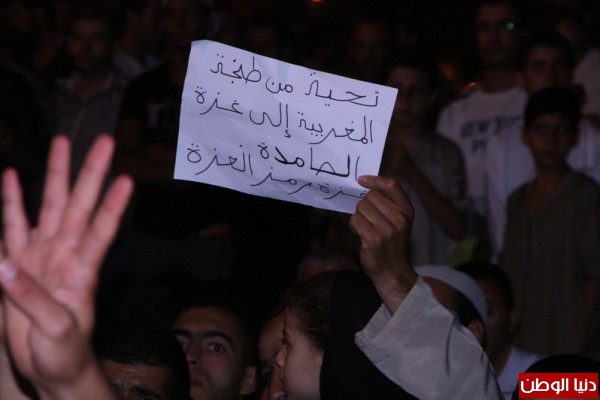 تحية من طنجة
المغربية إلى غزة
الصامدة
غزة رمز العزة
NEW
دنيا الوطن